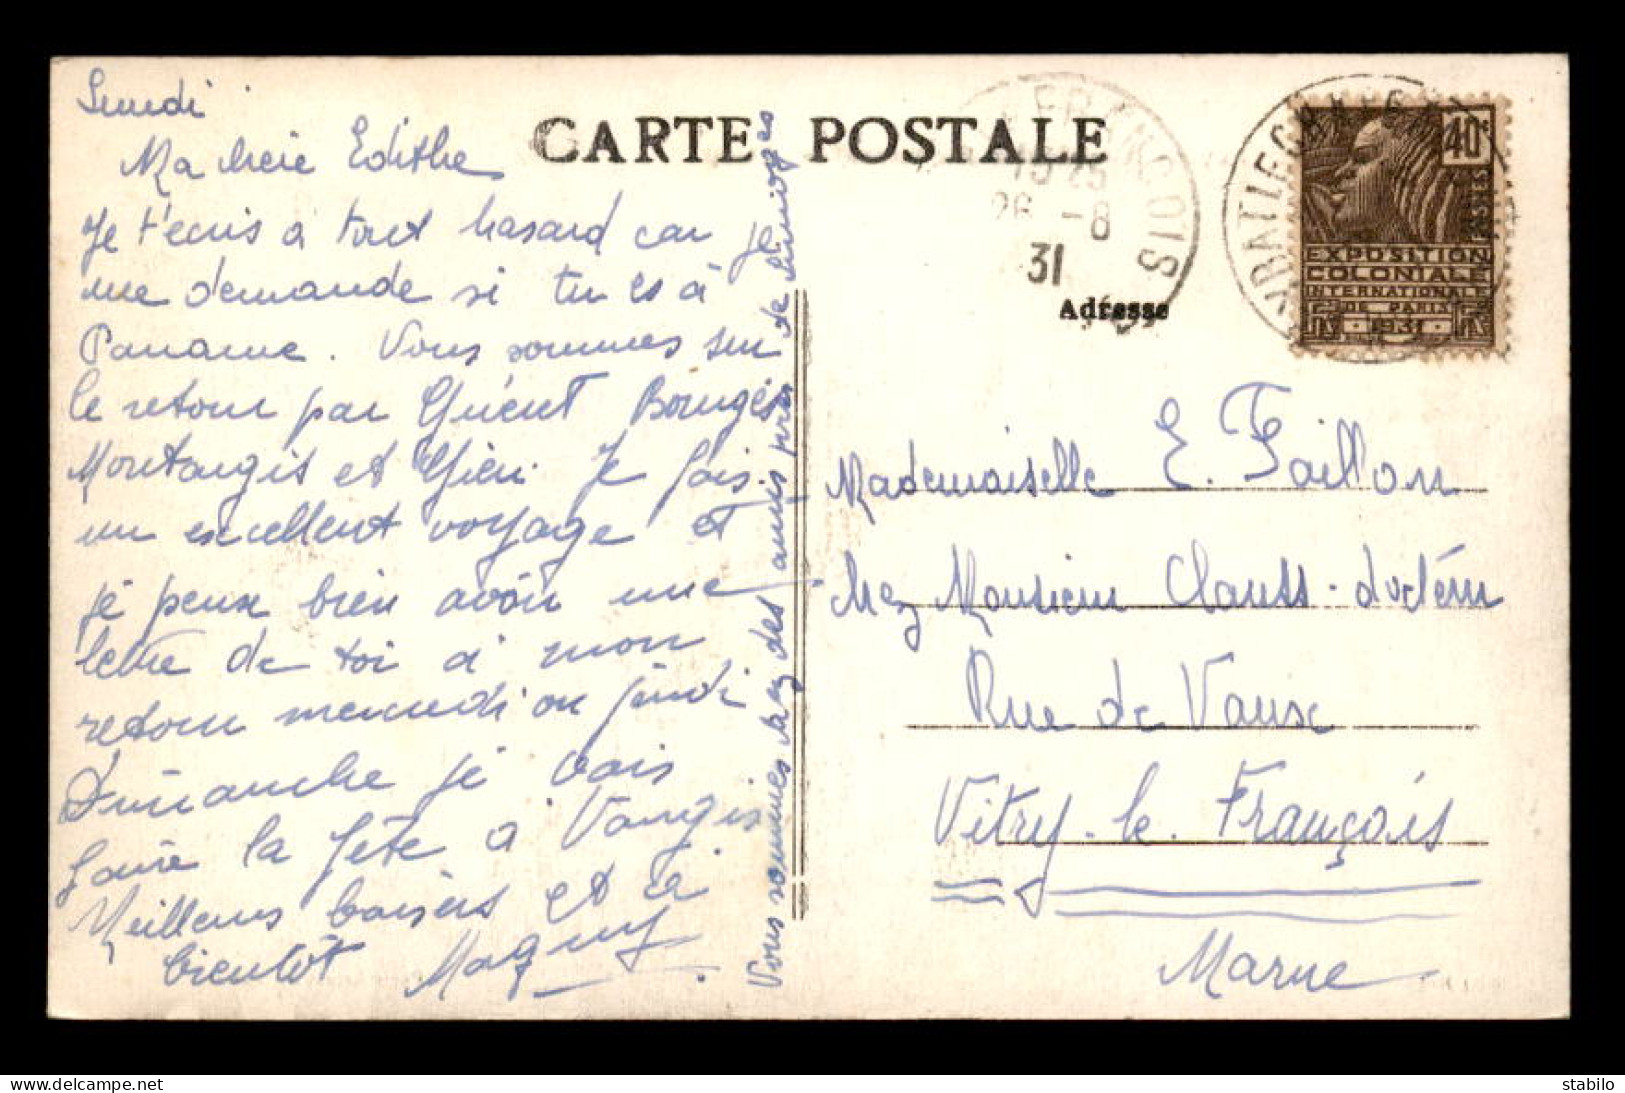 Lundi
Ma chère Edithe
Je t'écris à tout hasard car je
me demande si tu es à
Paname. Nous sommes sur
le retour par Guéret Bourges
Montargis et Gien. Je fais
un excellent voyage et
je peux bien avoir une
lettre de toi à mon
retour mercredi ou jeudi
Dimanche je vais
faire la fête à Vaugis
Meilleurs baisers et à
bientôt Maguy
Nous sommes chez des amis près de Limoges
CARTE POSTALE
FRANÇOIS
26 -8
31
Adresse
40c
POSTES
EXPOSITION
COLONIALE
INTERNATIONALE
DE PARIS
1931
Mademoiselle E. Faillon
chez Monsieur Clauss - docteur
Rue de Vaux
Vitry-le-François
Marne
delcampe.net
stabilo